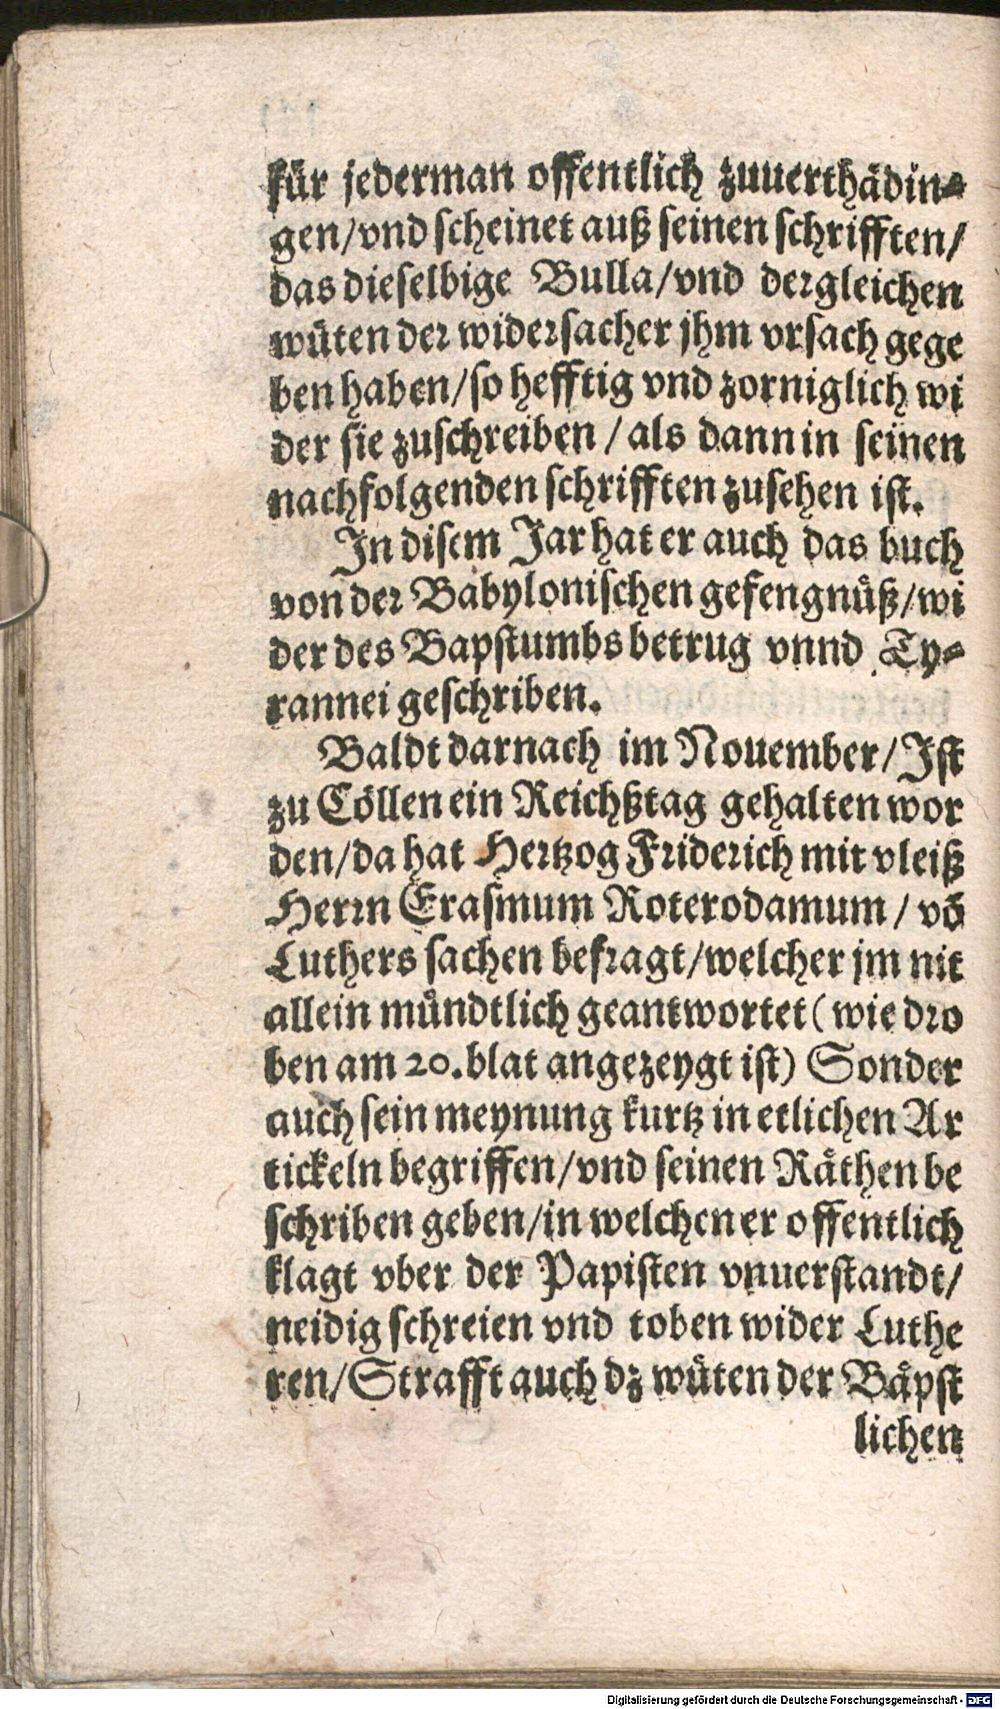 für jederman offentlich zuuerthädin⸗
gen/vnd scheinet auß seinen schrifften/
das dieselbige Bulla/vnd dergleichen
wüten der widersacher jhm vrsach gege
ben haben/so hefftig vnd zorniglich wi
der sie zuschreiben/als dann in seinen
nachfolgenden schrifften zusehen ist.
In disem Jar hat er auch das buch
von der Babylonischen gefengnüß/wi
der des Bapstumbs betrug vnnd Ty⸗
rannei geschriben.
Baldt darnach im Nouember/Ist
zu Cöllen ein Reichßtag gehalten wor
den/da hat Hertzog Friderich mit vleiß
Herrn Erasmum Roterodamum/võ
Luthers sachen befragt/welcher jm nit
allein mündtlich geantwortet(wie dro
ben am 20.blat angezeygt ist) Sonder
auch sein meynung kurtz in etlichen Ar
tickeln begriffen/vnd seinen Räthen be
schriben geben/in welchen er offentlich
klagt vber der Papisten vnuerstandt/
neidig schreien vnd toben wider Luthe
ren/Strafft auch dz wüten der Bäpst
lichen
Digitalisierung gefördert durch die Deutsche Forschungsgemeinschaft - DFG